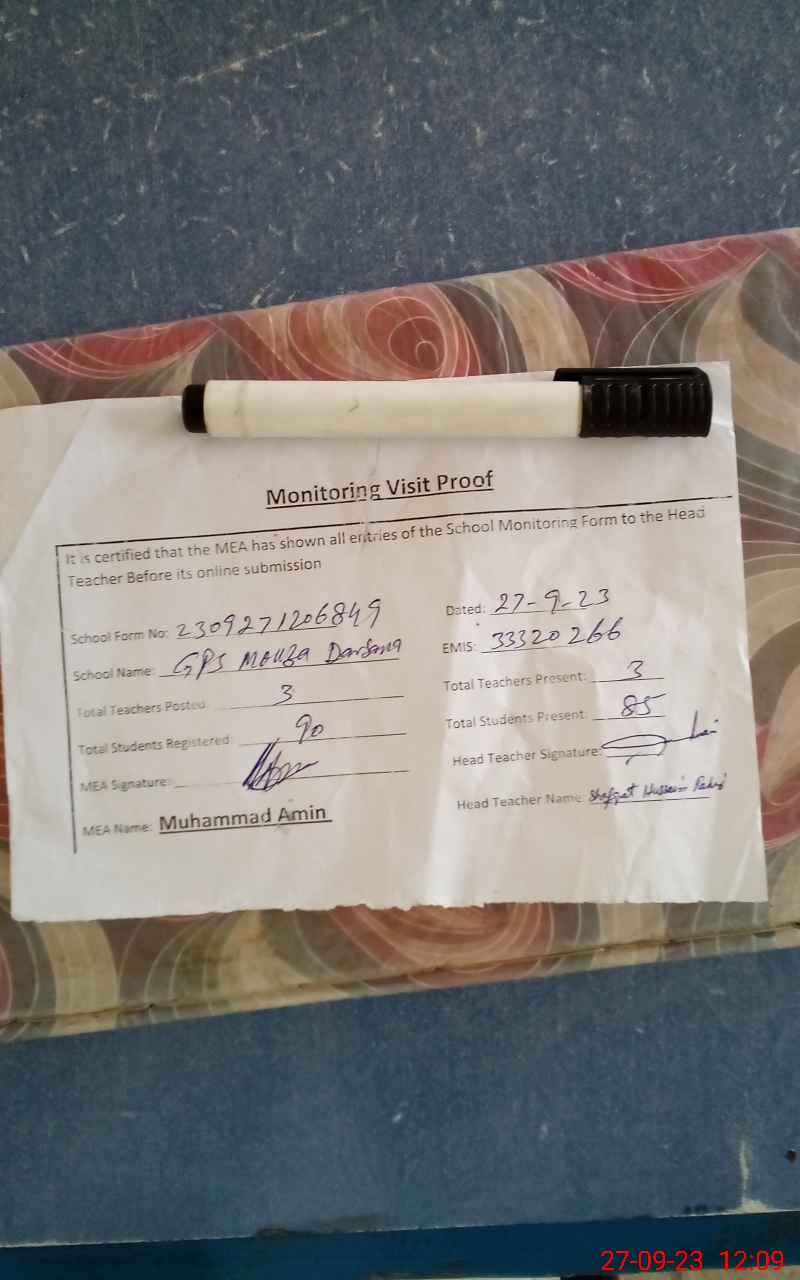 Monitoring Visit Proof
It is certified that the MEA has shown all entries of the School Monitoring Form to the Head
Teacher Before its online submission
School Form No: 2309271206849 Dated: 27-9-23
School Name: GPS Mouza Darsana EMIS: 33320266
Total Teachers Posted 3 Total Teachers Present: 3
Total Students Registered: 90 Total Students Present: 85
MEA Signature: Head Teacher Signature:
MEA Name: Muhammad Amin Head Teacher Name: Shafqat Hussain
27-09-23 12:09